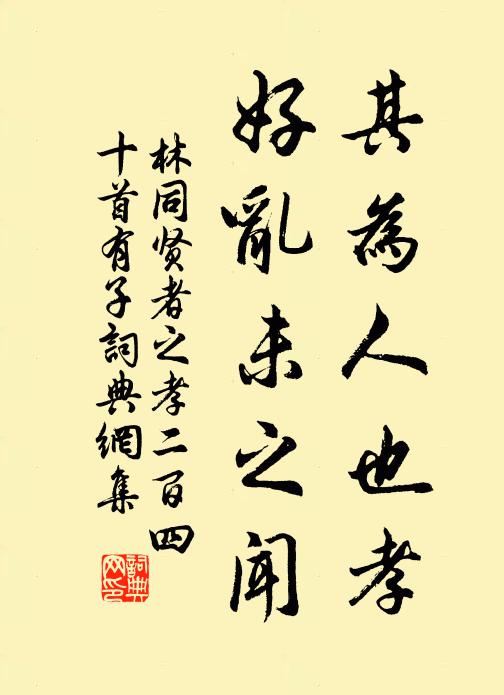 其為人也孝
好亂未之聞
林同贤者之孝二百四
十首有子詞典網集
詞典网印